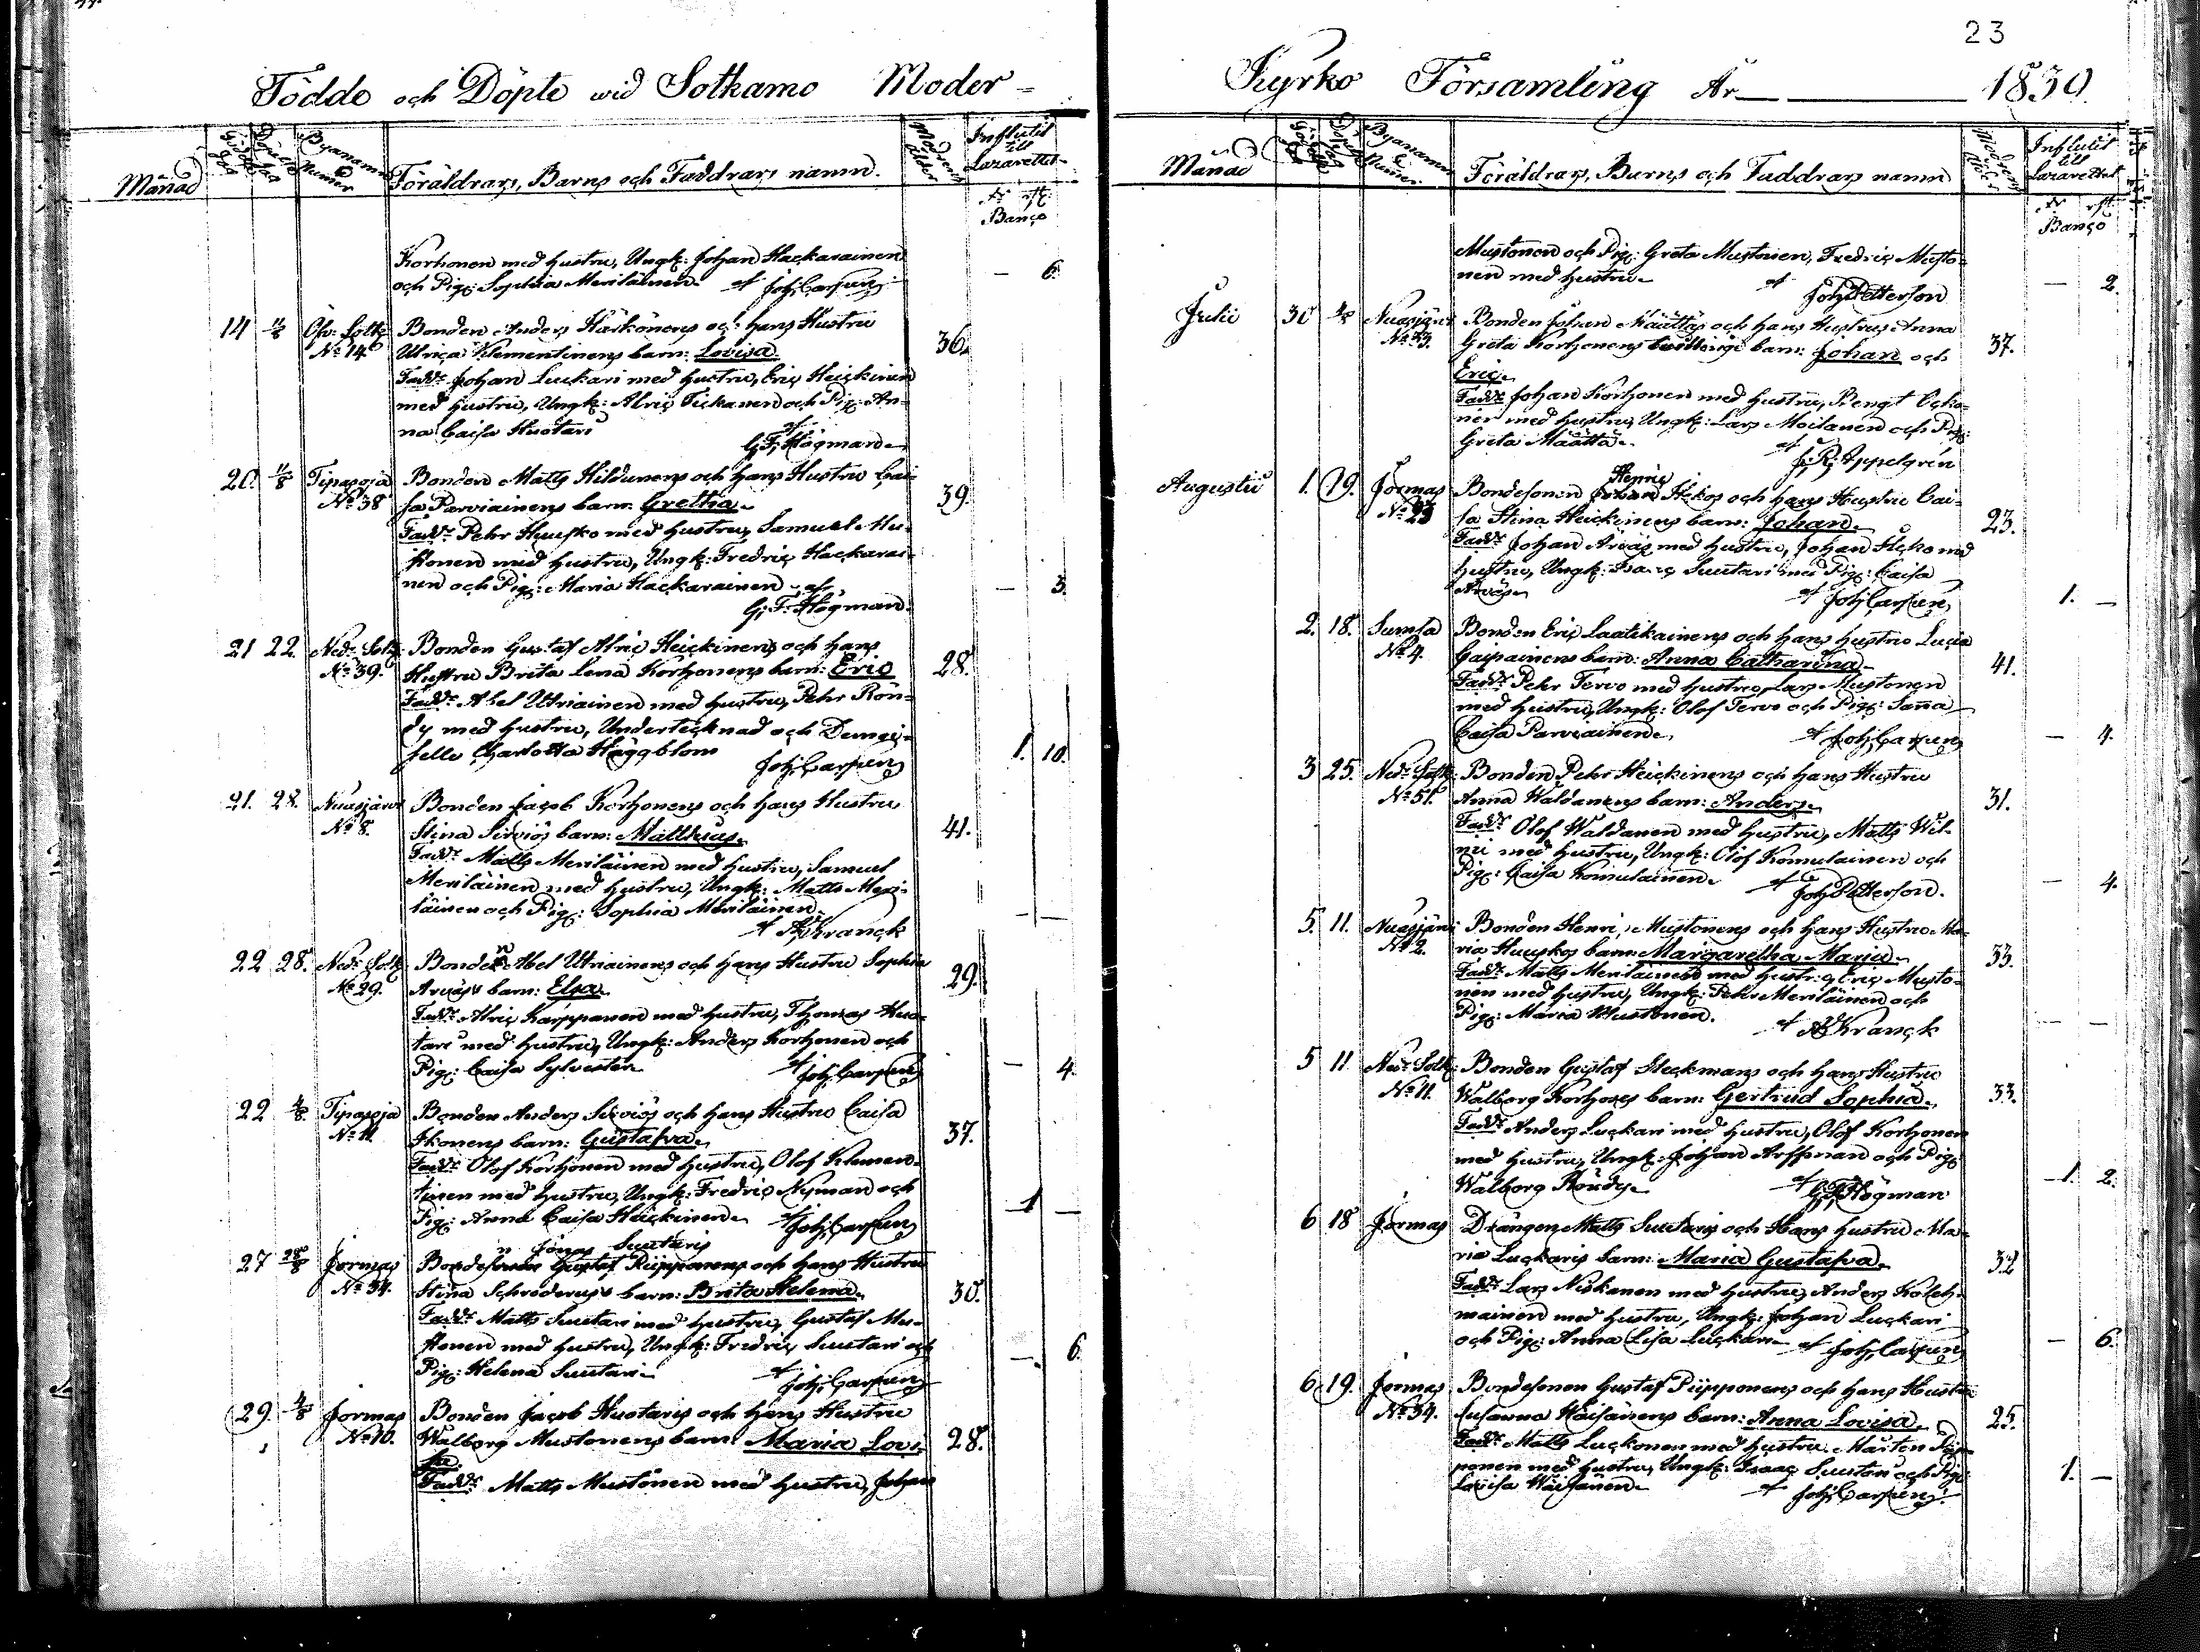 Födde och Döpte wid Sotkamo Moder-
Månad
Födelse dag
Döpelse dag
Byanamn & Numer
Föräldrars, Barns och Faddrars namn.
Modrens ålder
Influtit till Lazarettet
Banco
Korhonen med hustru, Ungk: Johan Hackarainen
och Pig: Sophia Meriläinen. af Joh. Carpen
— 6.
14 Öfv: Sotk: Bonden Anders Härkönens och hans Hustru
No 14. Ulrica Klementinens barn: Lovisa. 36.
Fadd: Johan Luckari med hustru, Eric Heickinen
med hustru, Ungk: Alric Tickanen och Pig: An-
na Caisa Huotari
af G. F. Högman
20. 11/8 Tipasoja Bonden Matts Hildunens och hans Hustru Cai-
No 38 sa Parviainens barn: Gretha. 39.
Fadd: Pehr Huusko med hustru, Samuel Mu-
stonen med hustru, Ungk: Fredric Hackarai-
nen och Pig: Maria Hackarainen af — 3.
G. F. Högman.
21 22. Ned: Sotk: Bonden Gustaf Alric Heickinens och hans
No 39. Hustru Brita Lena Korhonens barn: Eric 28.
Fadd: Abel Utriainen med hustru, Pehr Rön-
dy med hustru, Undertecknad och Demoi-
selle Charlotta Häggblom 1. 10.
Joh. Carpen
21. 28. Nuasjärvi Bonden Jacob Korhonens och hans Hustru
No 8. Stina Sirviös barn: Matthæus. 41.
Fadd: Matts Meriläinen med hustru, Samuel
Meriläinen med hustru, Ungk: Matts Meri-
läinen och Pig: Sophia Meriläinen. — —
af Kranck
22 28. Ned: Sotk: Bonden Abel Utriainens och hans Hustru Sophia
No 29. Arväs's barn: Elsa. 29.
Fadd: Alric Karppanen med hustru, Thomas Huo-
tari med hustru, Ungk: Anders Korhonen och
Pig: Caisa Sylvesten af Joh. Carpen — 4.
22 4/8 Tipasoja Bonden Anders Sirviös och hans Hustru Caisa
No 11. Ikonens barn: Gustafva. 37.
Fadd: Olof Korhonen med hustru, Olof Klemen-
tinen med hustru, Ungk: Fredric Nyman och
Pig: Anna Caisa Heickinen. af Joh. Carpen 1 —
n Jonas Suutaris
27 28/8 Jormas Bondesonen Gustaf Piipponens och hans Hustru
No 34. Stina Schröderus's barn: Brita Helena. 30.
Fadd: Matts Suutari med hustru, Gustaf Mu-
stonen med hustru, Ungk: Fredric Suutari och
Pig: Helena Suutari. af Joh. Carpen — 6.
29. 4/8 Jormas Bonden Jacob Huotaris och hans Hustru
No 10. Walborg Mustonens barn: Maria Lovi- 28.
sa.
Fadd: Matts Mustonen med hustru, Johan
23
Kyrko Församling År 1830.
Månad
Födelse dag
Döpelse dag
Byanamn & Numer
Föräldrars, Barns och Faddrars namn
Modrens ålder
Influtit till Lazarettet
Banco
Mustonen och Pig: Greta Mustonen, Fredric Musto-
nen med hustru. af Joh. Petterson — 2.
Julii 30 4/8 Nuasjärvi Bonden Johan Määttäs och hans Hustrus Anna
No 33. Greta Korhonens twillinge barn: Johan och 37.
Eric.
Fadd: Johan Korhonen med hustru, Bengt Ocko-
nen med hustru, Ungk: Lars Moilanen och Pig:
Greta Määttä. af
J. R. Appelgrén
Henric
Augustii 1. 19. Jormas Bondesonen Johan Heikos och hans Hustru Cai-
No 23 sa Stina Heickinens barn: Johan. 23.
Fadd: Johan Arväs med hustru, Johan Heiko med
hustru, Ungk: Isaac Suutari med Pig: Caisa
Arväs. af Joh. Carpen 1. —
2. 18. Sumsa Bonden Eric Laatikainens och hans hustru Lucia
No 4. Gaipainens barn: Anna Catharina. 41.
Fadd: Pehr Tervo med hustru, Lars Mustonen
med hustru, Ungk: Olof Tervo och Pig: Sanna
Caisa Parviainen. af Joh. Carpen — 4.
3 25. Ned: Sotk: Bonden Pehr Heickinens och hans Hustru
No 51. Anna Waldanens barn: Anders. 31.
Fadd: Olof Waldanen med hustru, Matts Wil-
mi med hustru, Ungk: Olof Komulainen och
Pig: Caisa Komulainen. af Joh. Petterson. — 4.
5. 11. Nuasjärvi Bonden Henric Mustonens och hans Hustru Ma-
No 2. ria Huuskos barn: Margaretha Maria. 33.
Fadd: Matts Meriläinen med hustru, Eric Musto-
nen med hustru, Ungk: Pehr Meriläinen och
Pig: Maria Mustonen. af Kranck — —
5 11 Ned: Sotk: Bonden Gustaf Heckmans och hans Hustru
No 11. Walborg Korhos's barn: Gertrud Sophia. 33.
Fadd: Anders Luckari med hustru, Olof Korhonen
med hustru, Ungk: Johan Arffman och Pig:
Walborg Röndy. af G. F. Högman 1. 2.
6 18 Jormas Drängen Matts Suutaris och hans hustru Ma-
ria Luckaris barn: Maria Gustafva. 32
Fadd: Lars Niskanen med hustru, Anders Koleh-
mainen med hustru, Ungk: Johan Luckari
och Pig: Anna Lisa Luckari. af Joh. Carpen — 6.
6 19. Jormas Bondesonen Gustaf Piipponens och hans Hustru
No 34. Susanna Wäisänens barn: Anna Lovisa. 25.
Fadd: Matts Luckonen med hustru, Mårten Piip-
ponen med hustru, Ungk: Isaac Suutari och Pig:
Lovisa Wäisänen. af Joh. Carpen 1. —